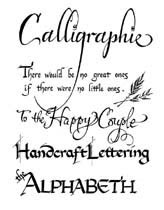 Calligraphie
There would be no great ones
if there were no little ones.
To the Happy Couple
Handcraft Lettering
the ALPHABETH